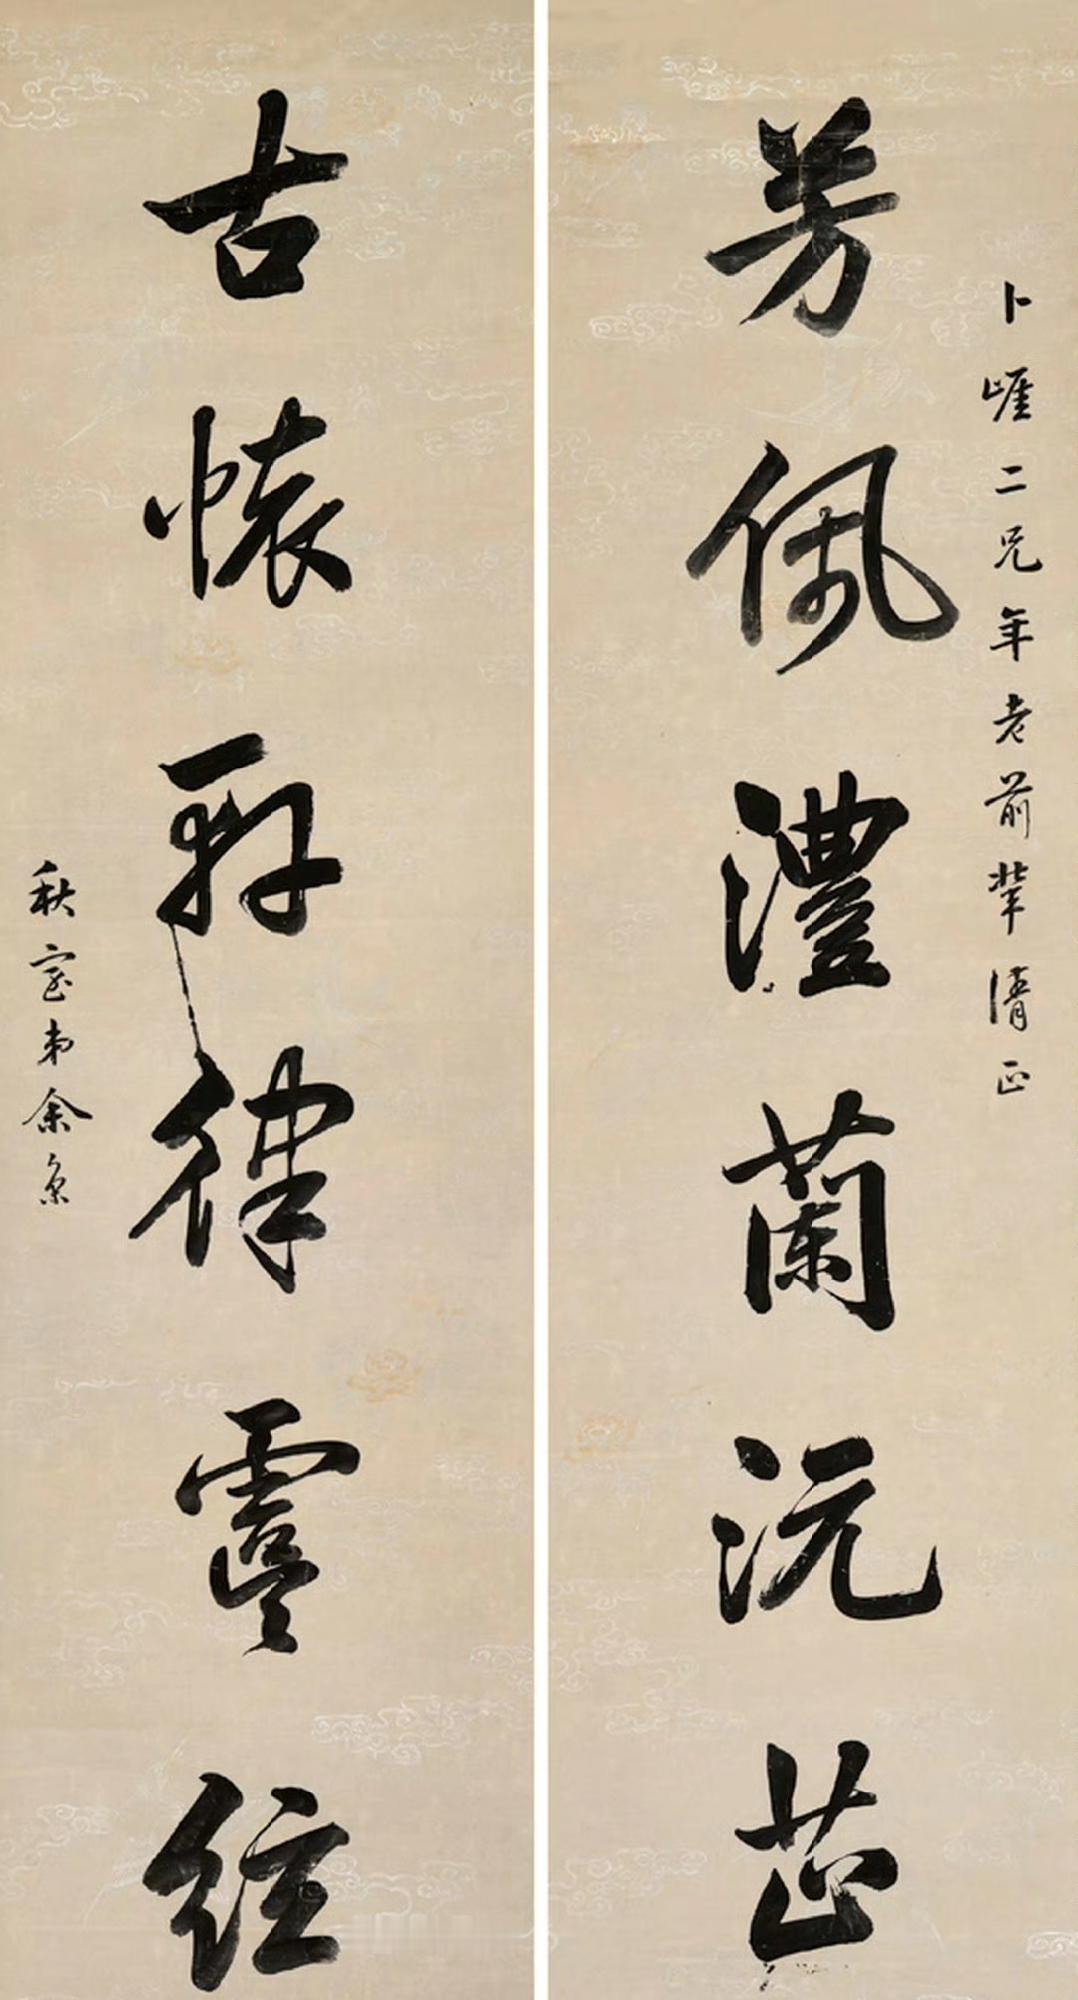 卜崕二兄年老前輩清正
芳佩澧蘭沅芷
古懷軒律虞絃
秋室弟余集